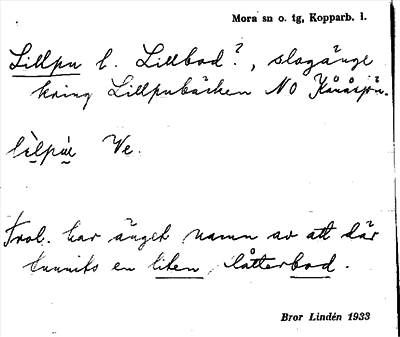 Mora sn o. tg, Kopparb. l.
Lillpu l. Lillbod?, slogänge
kring Lillpubäcken NO
lèlpúe Ve.
Trol. har änget namn av att där
funnits en liten låtterbod.
Bror Lindén 1933